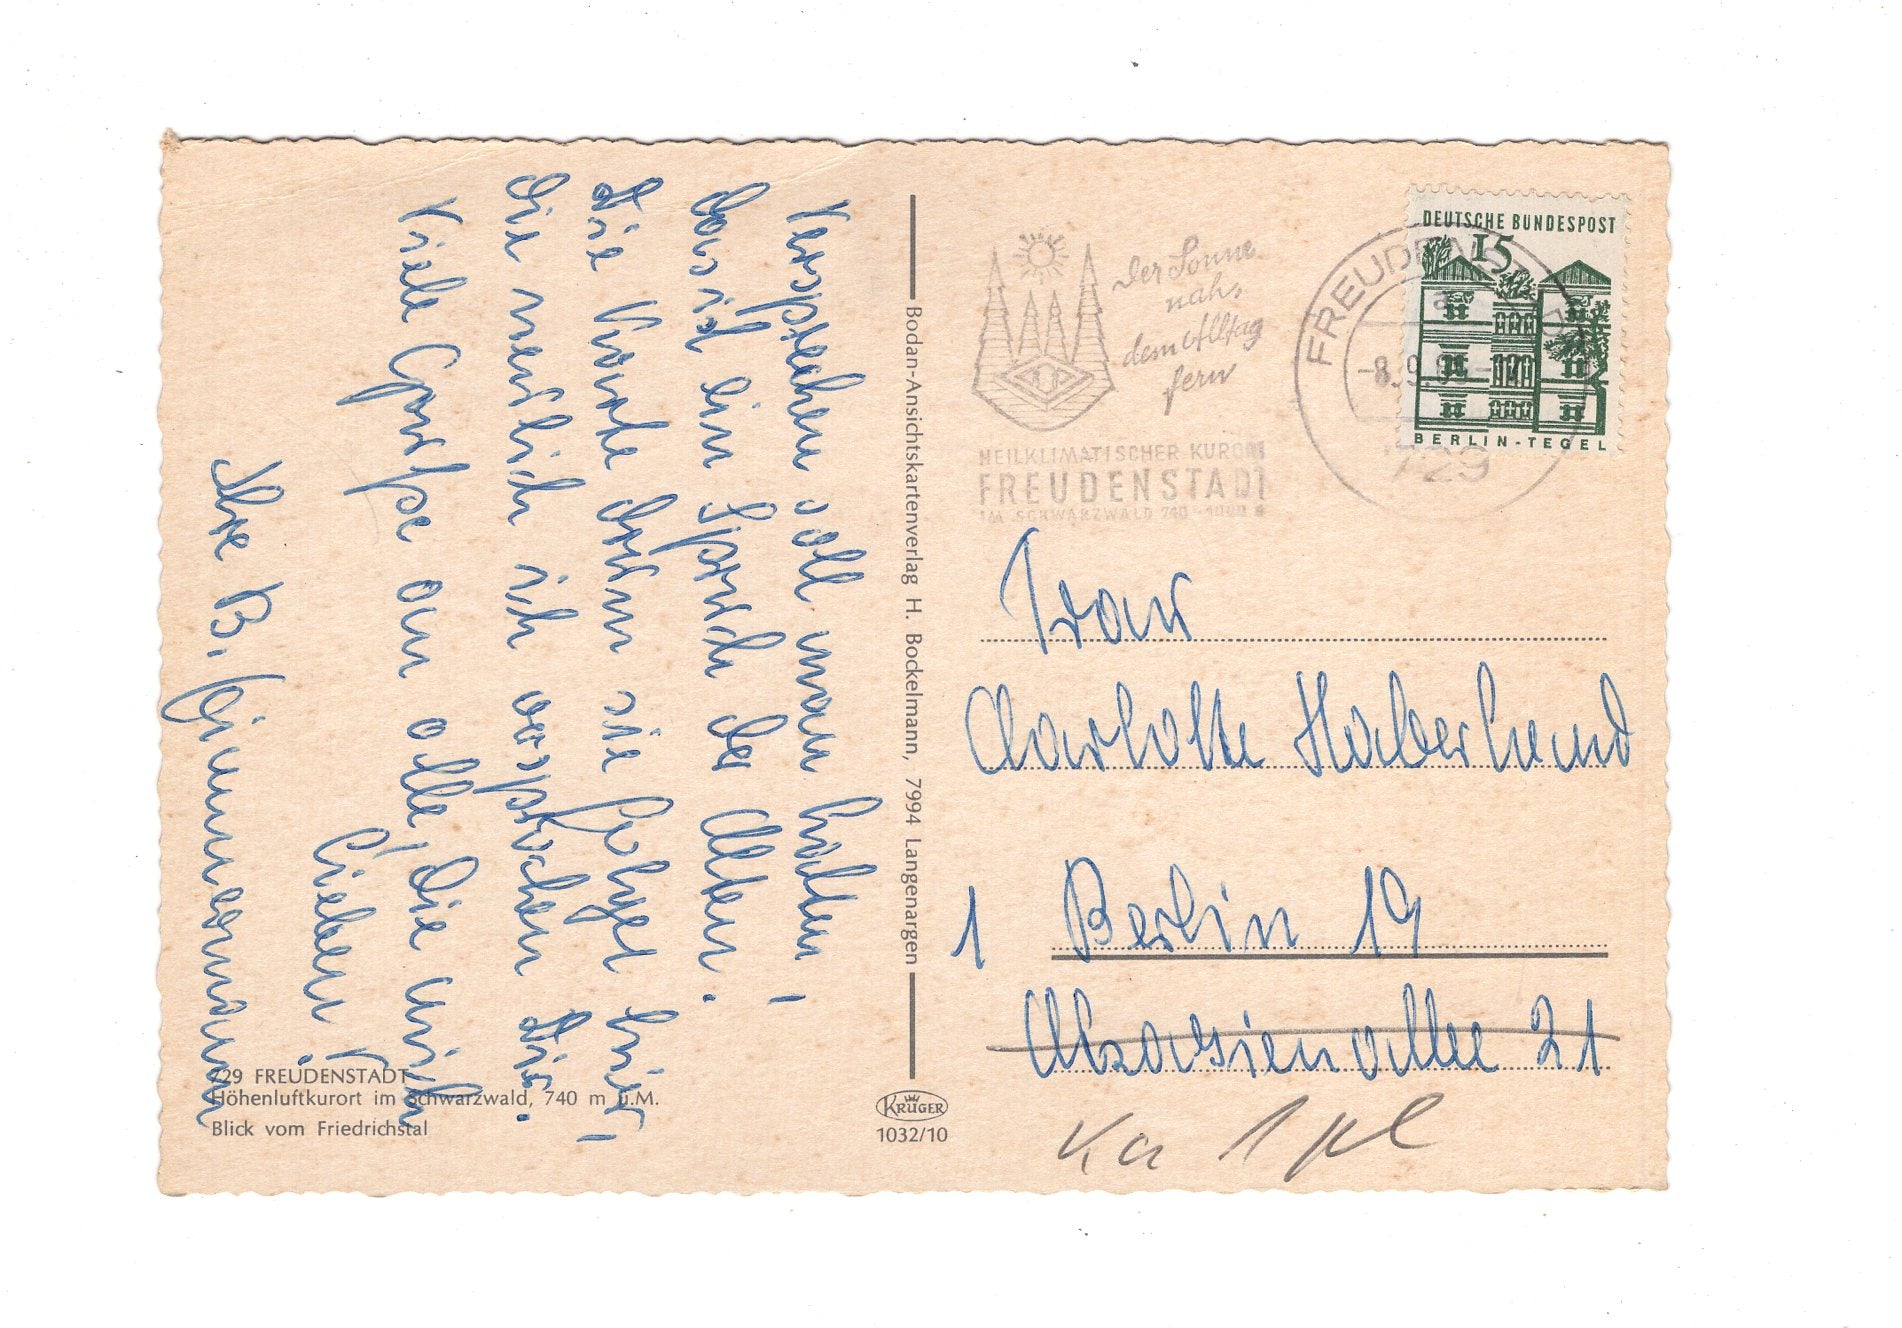 Versprechen soll man halten!
Das ist ein Spruch der Alten.
Die Karte drum sie folget hier!
die neulich ich versprochen Dir.
Viele Grüße an alle, die mich
lieben!
Ihre B. Zimmermann
729 FREUDENSTADT
Höhenluftkurort im Schwarzwald, 740 m ü.M.
Blick vom Friedrichstal
Bodan-Ansichtskartenverlag H. Bockelmann, 7994 Langenargen
KRÜGER
1032/10
Der Sonne
nah,
dem Alltag
fern
HEILKLIMATISCHER KURORT
FREUDENSTADT
IM SCHWARZWALD 740-1000 m
FREUDENSTADT
a
-8.9.
729
DEUTSCHE BUNDESPOST
15
BERLIN-TEGEL
Frau
Charlotte Haberland
1 Berlin 19
21